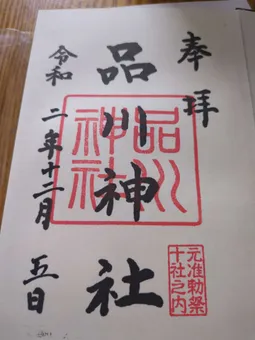 奉拝
品川神社
品川神社
元准勅祭
十社之内
令和二年十二月五日